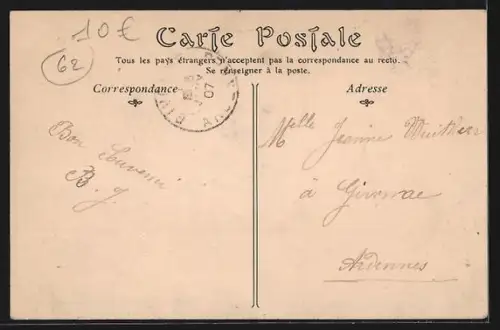 10€
62
Carte Postale
Tous les pays étrangers n'acceptent pas la correspondance au recto.
Se renseigner à la poste.
Correspondance
Adresse
07
Bon Souvenir
B. J.
Melle Jeanne
à
Ardennes